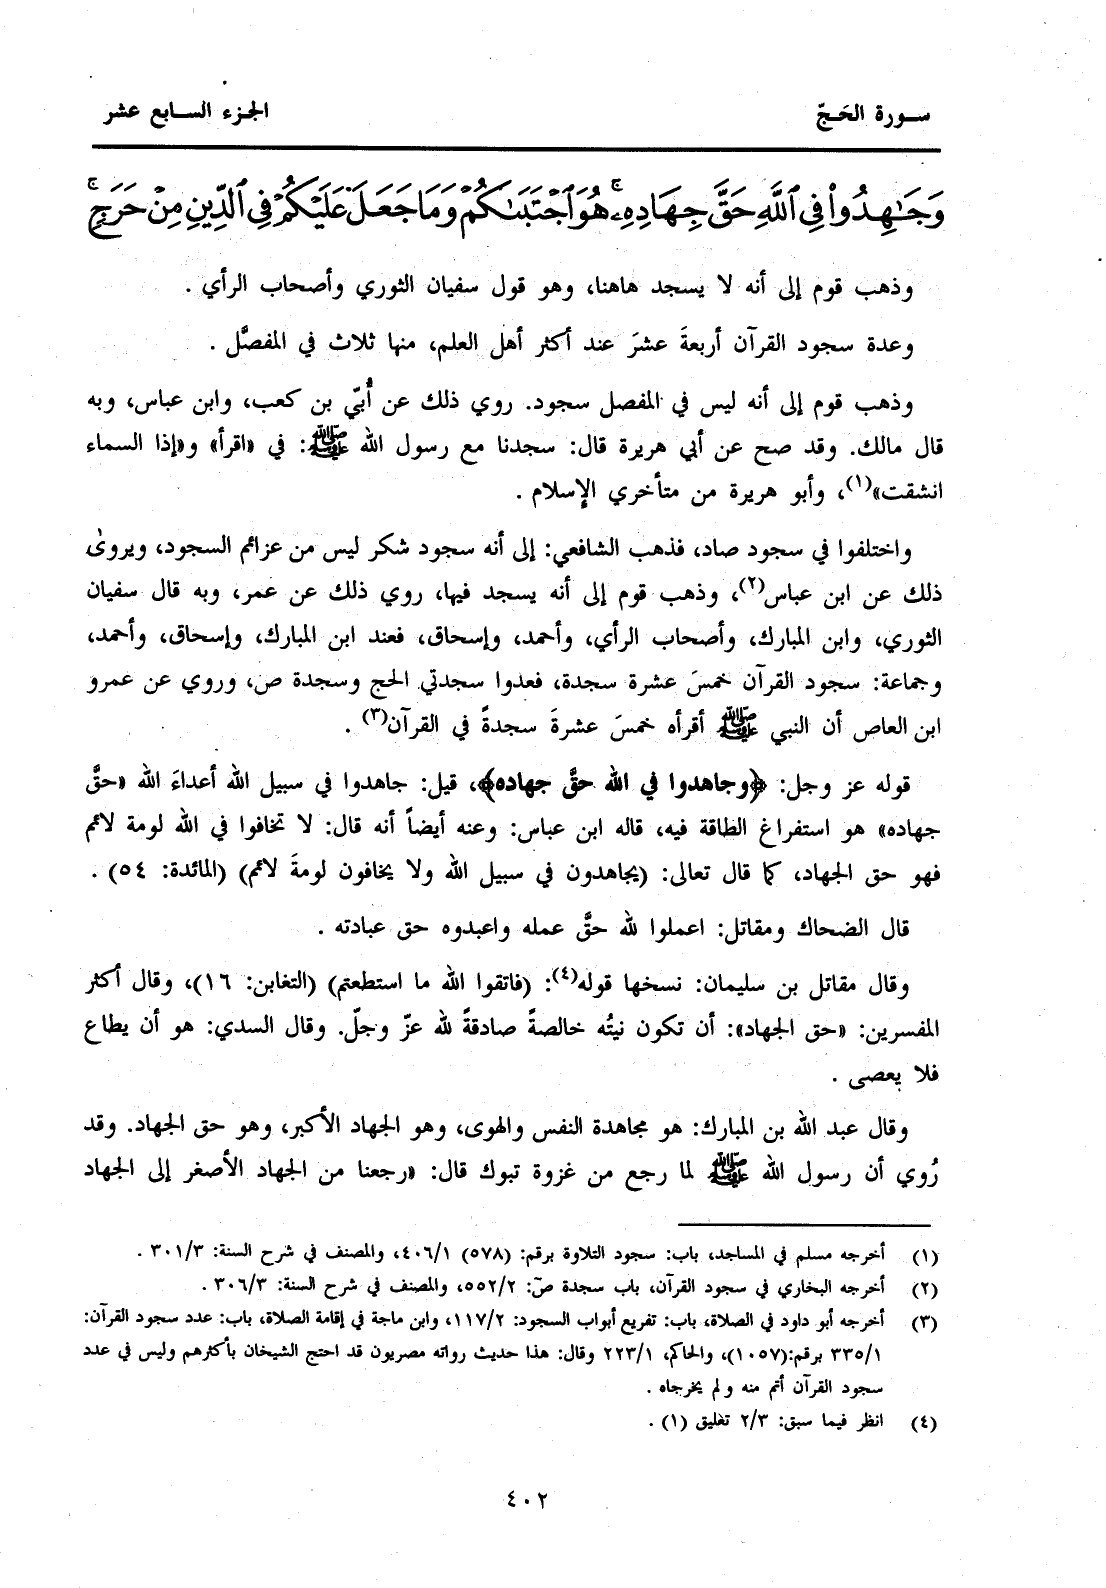 سورة الحَجّ
الجزء السابع عشر
وَجَٰهِدُوا۟ فِى ٱللَّهِ حَقَّ جِهَادِهِۦ ۚ هُوَ ٱجْتَبَىٰكُمْ وَمَا جَعَلَ عَلَيْكُمْ فِى ٱلدِّينِ مِنْ حَرَجٍ ۚ
وذهب قوم إلى أنه لا يسجد هاهنا، وهو قول سفيان الثوري وأصحاب الرأي .
وعدة سجود القرآن أربعةَ عشرَ عند أكثر أهل العلم، منها ثلاث في المفصَّل .
وذهب قوم إلى أنه ليس في المفصل سجود. روي ذلك عن أُبيّ بن كعب، وابن عباس، وبه
قال مالك. وقد صح عن أبي هريرة قال: سجدنا مع رسول الله ﷺ: في «اقرأ» و«إذا السماء
انشقت»(١)، وأبو هريرة من متأخري الإسلام .
واختلفوا في سجود صاد، فذهب الشافعي: إلى أنه سجود شكر ليس من عزائم السجود، ويروىٰ
ذلك عن ابن عباس(٢)، وذهب قوم إلى أنه يسجد فيها، روي ذلك عن عمر، وبه قال سفيان
الثوري، وابن المبارك، وأصحاب الرأي، وأحمد، وإسحاق، فعند ابن المبارك، وإسحاق، وأحمد،
وجماعة: سجود القرآن خمسَ عشرة سجدة، فعدوا سجدتي الحج وسجدة ص، وروي عن عمرو
ابن العاص أن النبي ﷺ أقرأه خمسَ عشرةَ سجدةً في القرآن(٣) .
قوله عز وجل: ﴿وجاهدوا في الله حقَّ جهاده﴾، قيل: جاهدوا في سبيل الله أعداءَ الله «حقَّ
جهاده» هو استفراغ الطاقة فيه، قاله ابن عباس: وعنه أيضاً أنه قال: لا تخافوا في الله لومة لائم
فهو حق الجهاد، كما قال تعالى: (يجاهدون في سبيل الله ولا يخافون لومةَ لائم) (المائدة: ٥٤) .
قال الضحاك ومقاتل: اعملوا لله حقَّ عمله واعبدوه حق عبادته .
وقال مقاتل بن سليمان: نسخها قوله(٤): (فاتقوا الله ما استطعتم) (التغابن: ١٦)، وقال أكثر
المفسرين: «حق الجهاد»: أن تكون نيتُه خالصةً صادقةً لله عزّ وجلّ. وقال السدي: هو أن يطاع
فلا يعصى .
وقال عبد الله بن المبارك: هو مجاهدة النفس والهوى، وهو الجهاد الأكبر، وهو حق الجهاد. وقد
رُوي أن رسول الله ﷺ لما رجع من غزوة تبوك قال: «رجعنا من الجهاد الأصغر إلى الجهاد
(١) أخرجه مسلم في المساجد، باب: سجود التلاوة برقم: (٥٧٨) ٤٠٦/١، والمصنف في شرح السنة: ٣٠١/٣ .
(٢) أخرجه البخاري في سجود القرآن، باب سجدة صٓ: ٥٥٢/٢، والمصنف في شرح السنة: ٣٠٦/٣ .
(٣) أخرجه أبو داود في الصلاة، باب: تفريع أبواب السجود: ١١٧/٢، وابن ماجة في إقامة الصلاة، باب: عدد سجود القرآن:
٣٣٥/١ برقم:(١٠٥٧)، والحاكم، ٢٢٣/١ وقال: هذا حديث رواته مصريون قد احتج الشيخان بأكثرهم وليس في عدد
سجود القرآن أتم منه ولم يخرجاه .
(٤) انظر فيما سبق: ٢/٣ تعليق (١) .
٤٠٢